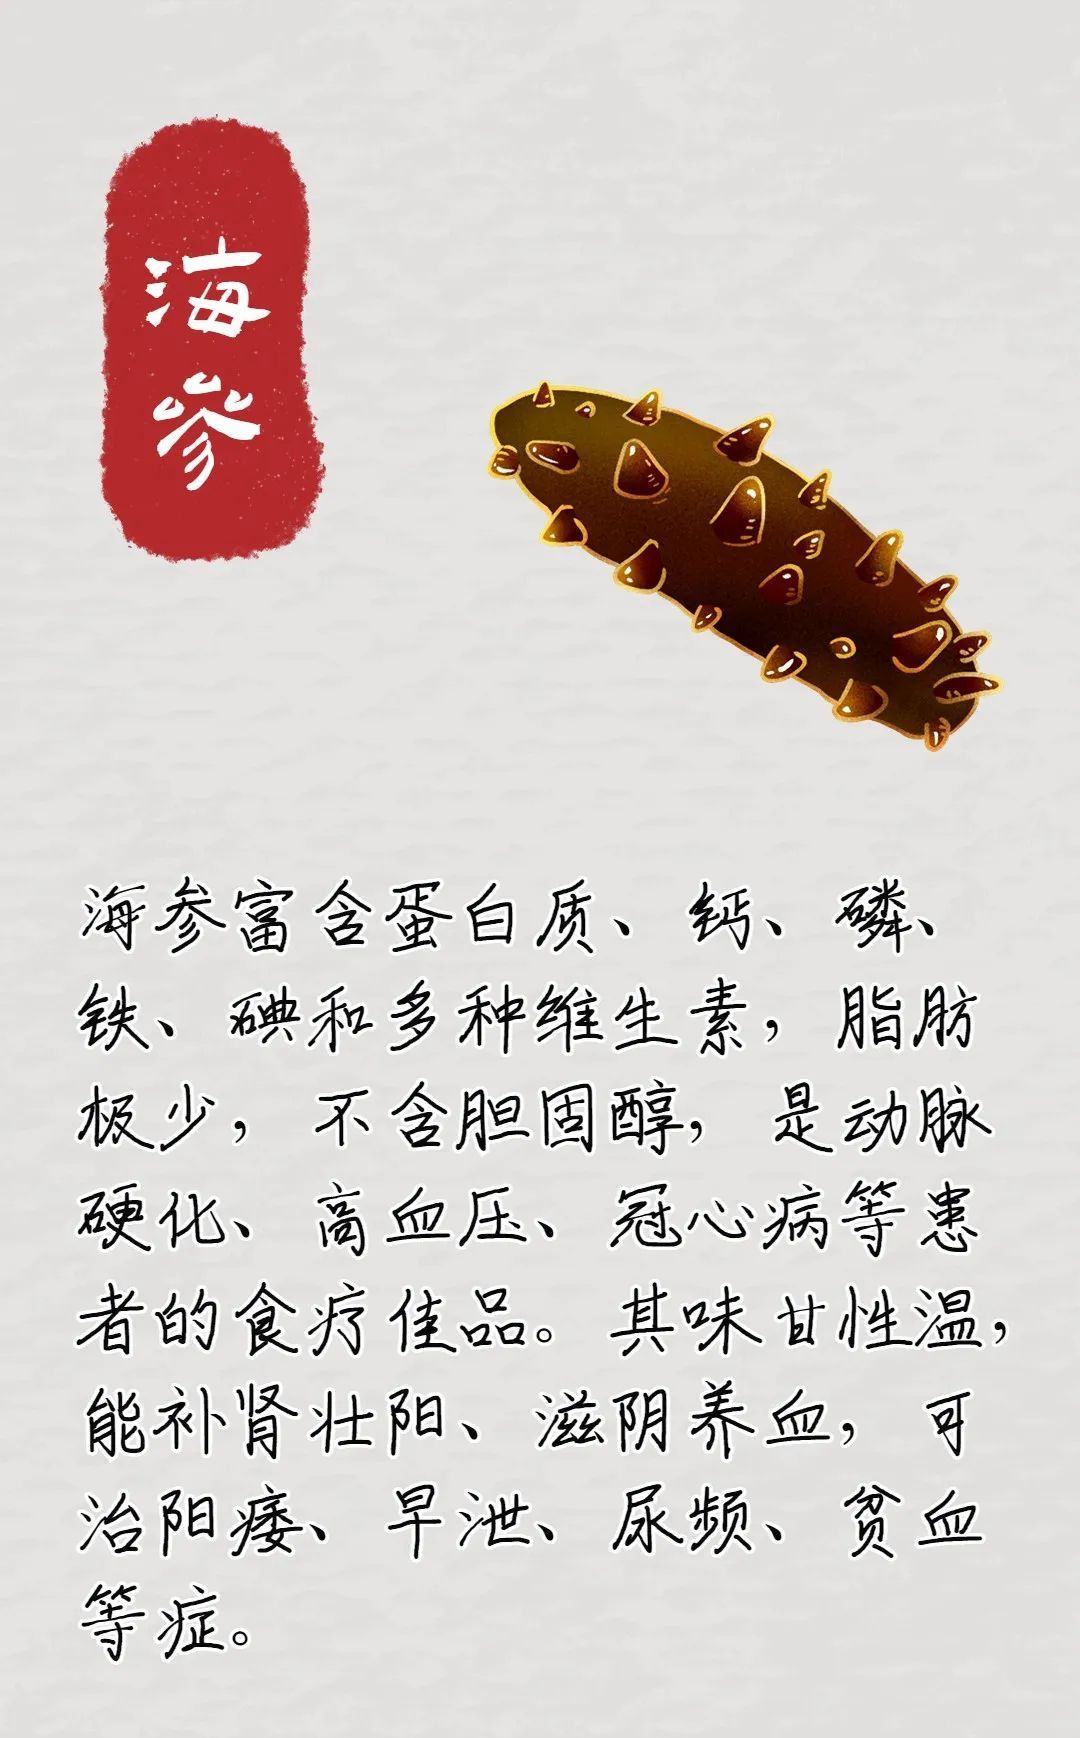 海参
海参富含蛋白质、钙、磷、
铁、碘和多种维生素，脂肪
极少，不含胆固醇，是动脉
硬化、高血压、冠心病等患
者的食疗佳品。其味甘性温，
能补肾壮阳、滋阴养血，可
治阳痿、早泄、尿频、贫血
等症。